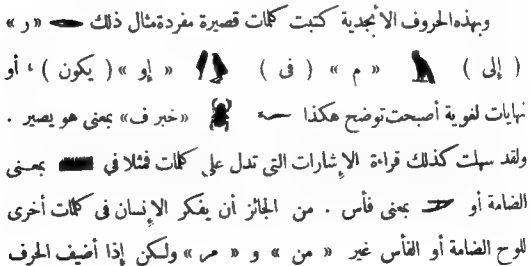 وبهذه الحروف الأبجدية كتبت كلمات قصيرة مفردة مثال ذلك 𓂋 « ر »
( إلى ) 𓅓 « م » ( فى ) 𓇋𓅱 « إو » ( يكون ) ، أو
نهايات لغوية أصبحت توضح هكذا 𓆣 𓆑 « خبر ف » بمعنى هو يصير .
ولقد سهلت كذلك قراءة الإشارات التى تدل على كلمات فمثلا فى 𓏠 بمعنى
الضامة أو 𓌸 بمعنى فأس . من الجائز أن يفكر الإنسان فى كلمات أخرى
للوح الضامة أو الفأس غير « من » و « مر » ولكن إذا أضيف الحرف